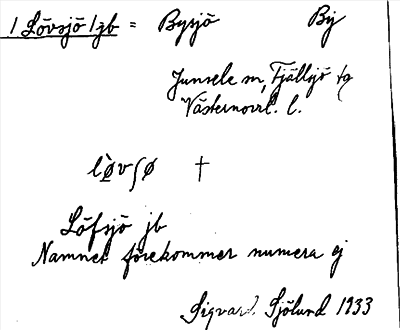 1 Lövsjö 1 jb = Bysjö By
Junsele sn, Fjällsjö tg
Västernorrl. l.
lø̀vʃø †
Löfsjö jb
Namnet förekommer numera ej
Sigvard Sjölund 1933